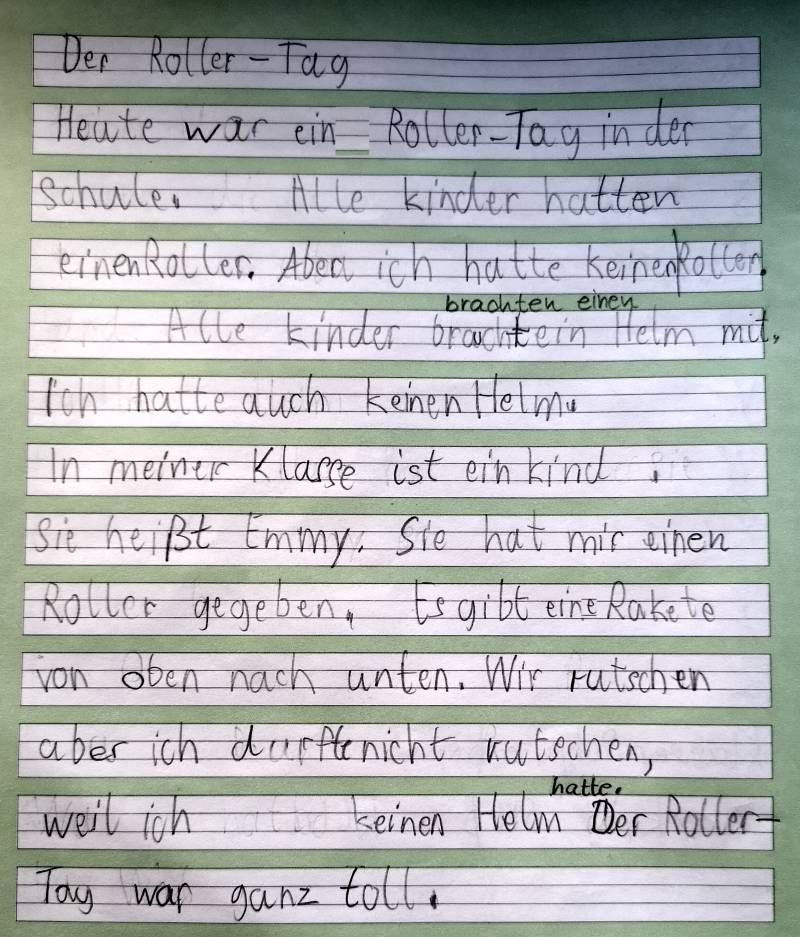 Der Roller-Tag
Heute war ein Roller-Tag in der
Schule. Alle kinder hatten
einen Roller. Aber ich hatte keinen Roller.
brachten einen
Alle kinder brachtein Helm mit.
Ich hatte auch keinen Helm.
In meiner Klasse ist ein kind.
Sie heißt Emmy. Sie hat mir einen
Roller gegeben. Es gibt eine Rakete
von oben nach unten. Wir rutschen
aber ich durfte nicht rutschen,
hatte.
weil ich keinen Helm Der Roller-
Tag war ganz toll.